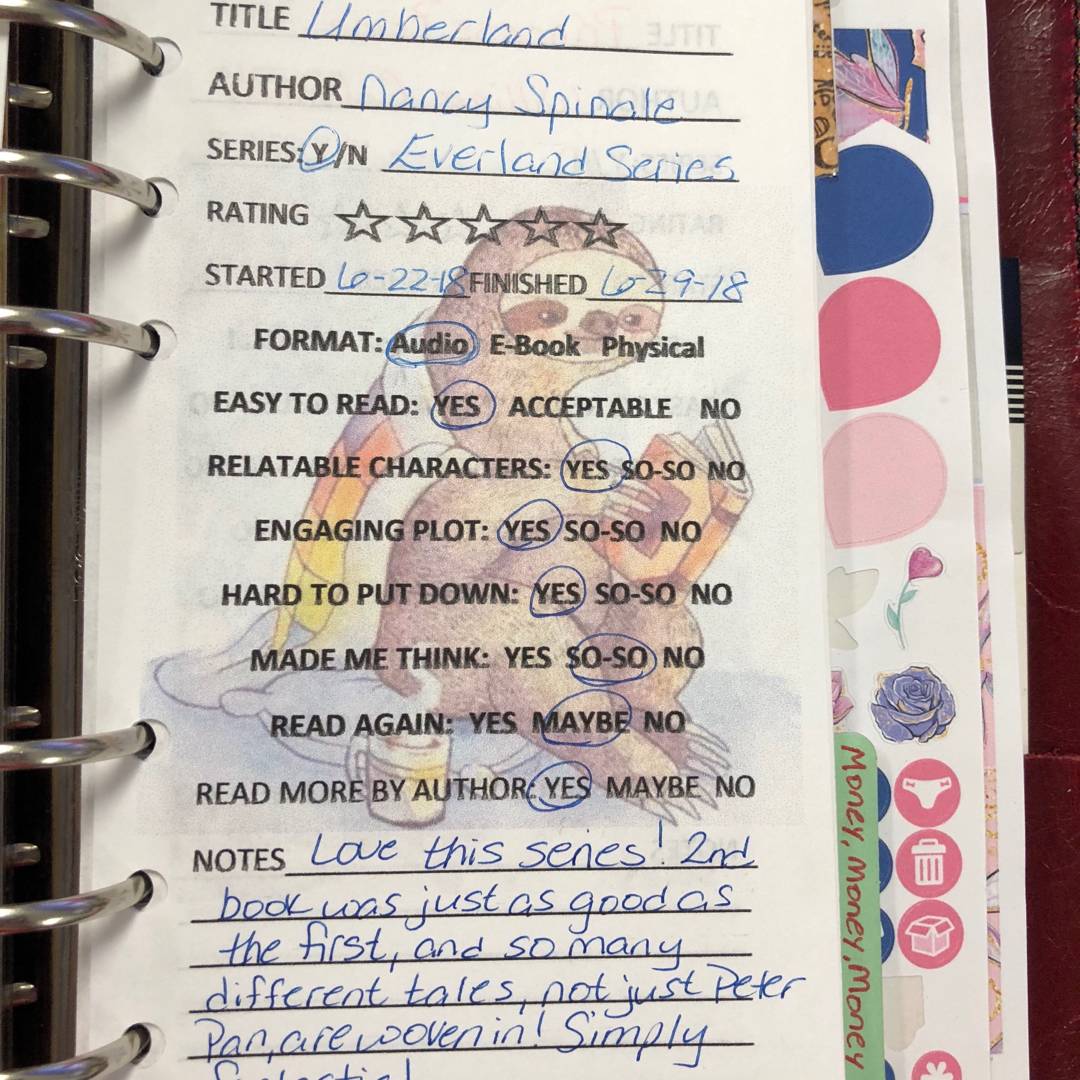 TITLE Umberland
AUTHOR Nancy Spinale
SERIES: Y/N Everland Series
RATING
STARTED 6-22-18 FINISHED 6-29-18
FORMAT: Audio E-Book Physical
EASY TO READ: YES ACCEPTABLE NO
RELATABLE CHARACTERS: YES SO-SO NO
ENGAGING PLOT: YES SO-SO NO
HARD TO PUT DOWN: YES SO-SO NO
MADE ME THINK: YES SO-SO NO
READ AGAIN: YES MAYBE NO
READ MORE BY AUTHOR: YES MAYBE NO
NOTES Love this series! 2nd
book was just as good as
the first, and so many
different tales, not just Peter
Pan, are woven in! Simply
Money, Money, Money